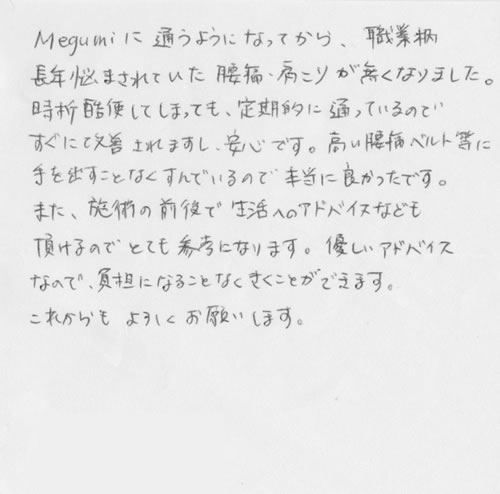 Megumiに通うようになってから、職業柄
長年悩まされていた腰痛・肩こりが無くなりました。
時折酷使してしまっても、定期的に通っているので
すぐにて改善されますし、安心です。高い腰痛ベルト等に
手を出すことなくすんでいるので本当に良かったです。
また、施術の前後で生活へのアドバイスなども
頂けるのでとても参考になります。優しいアドバイス
なので、負担になることなくきくことができます。
これからもよろしくお願いします。